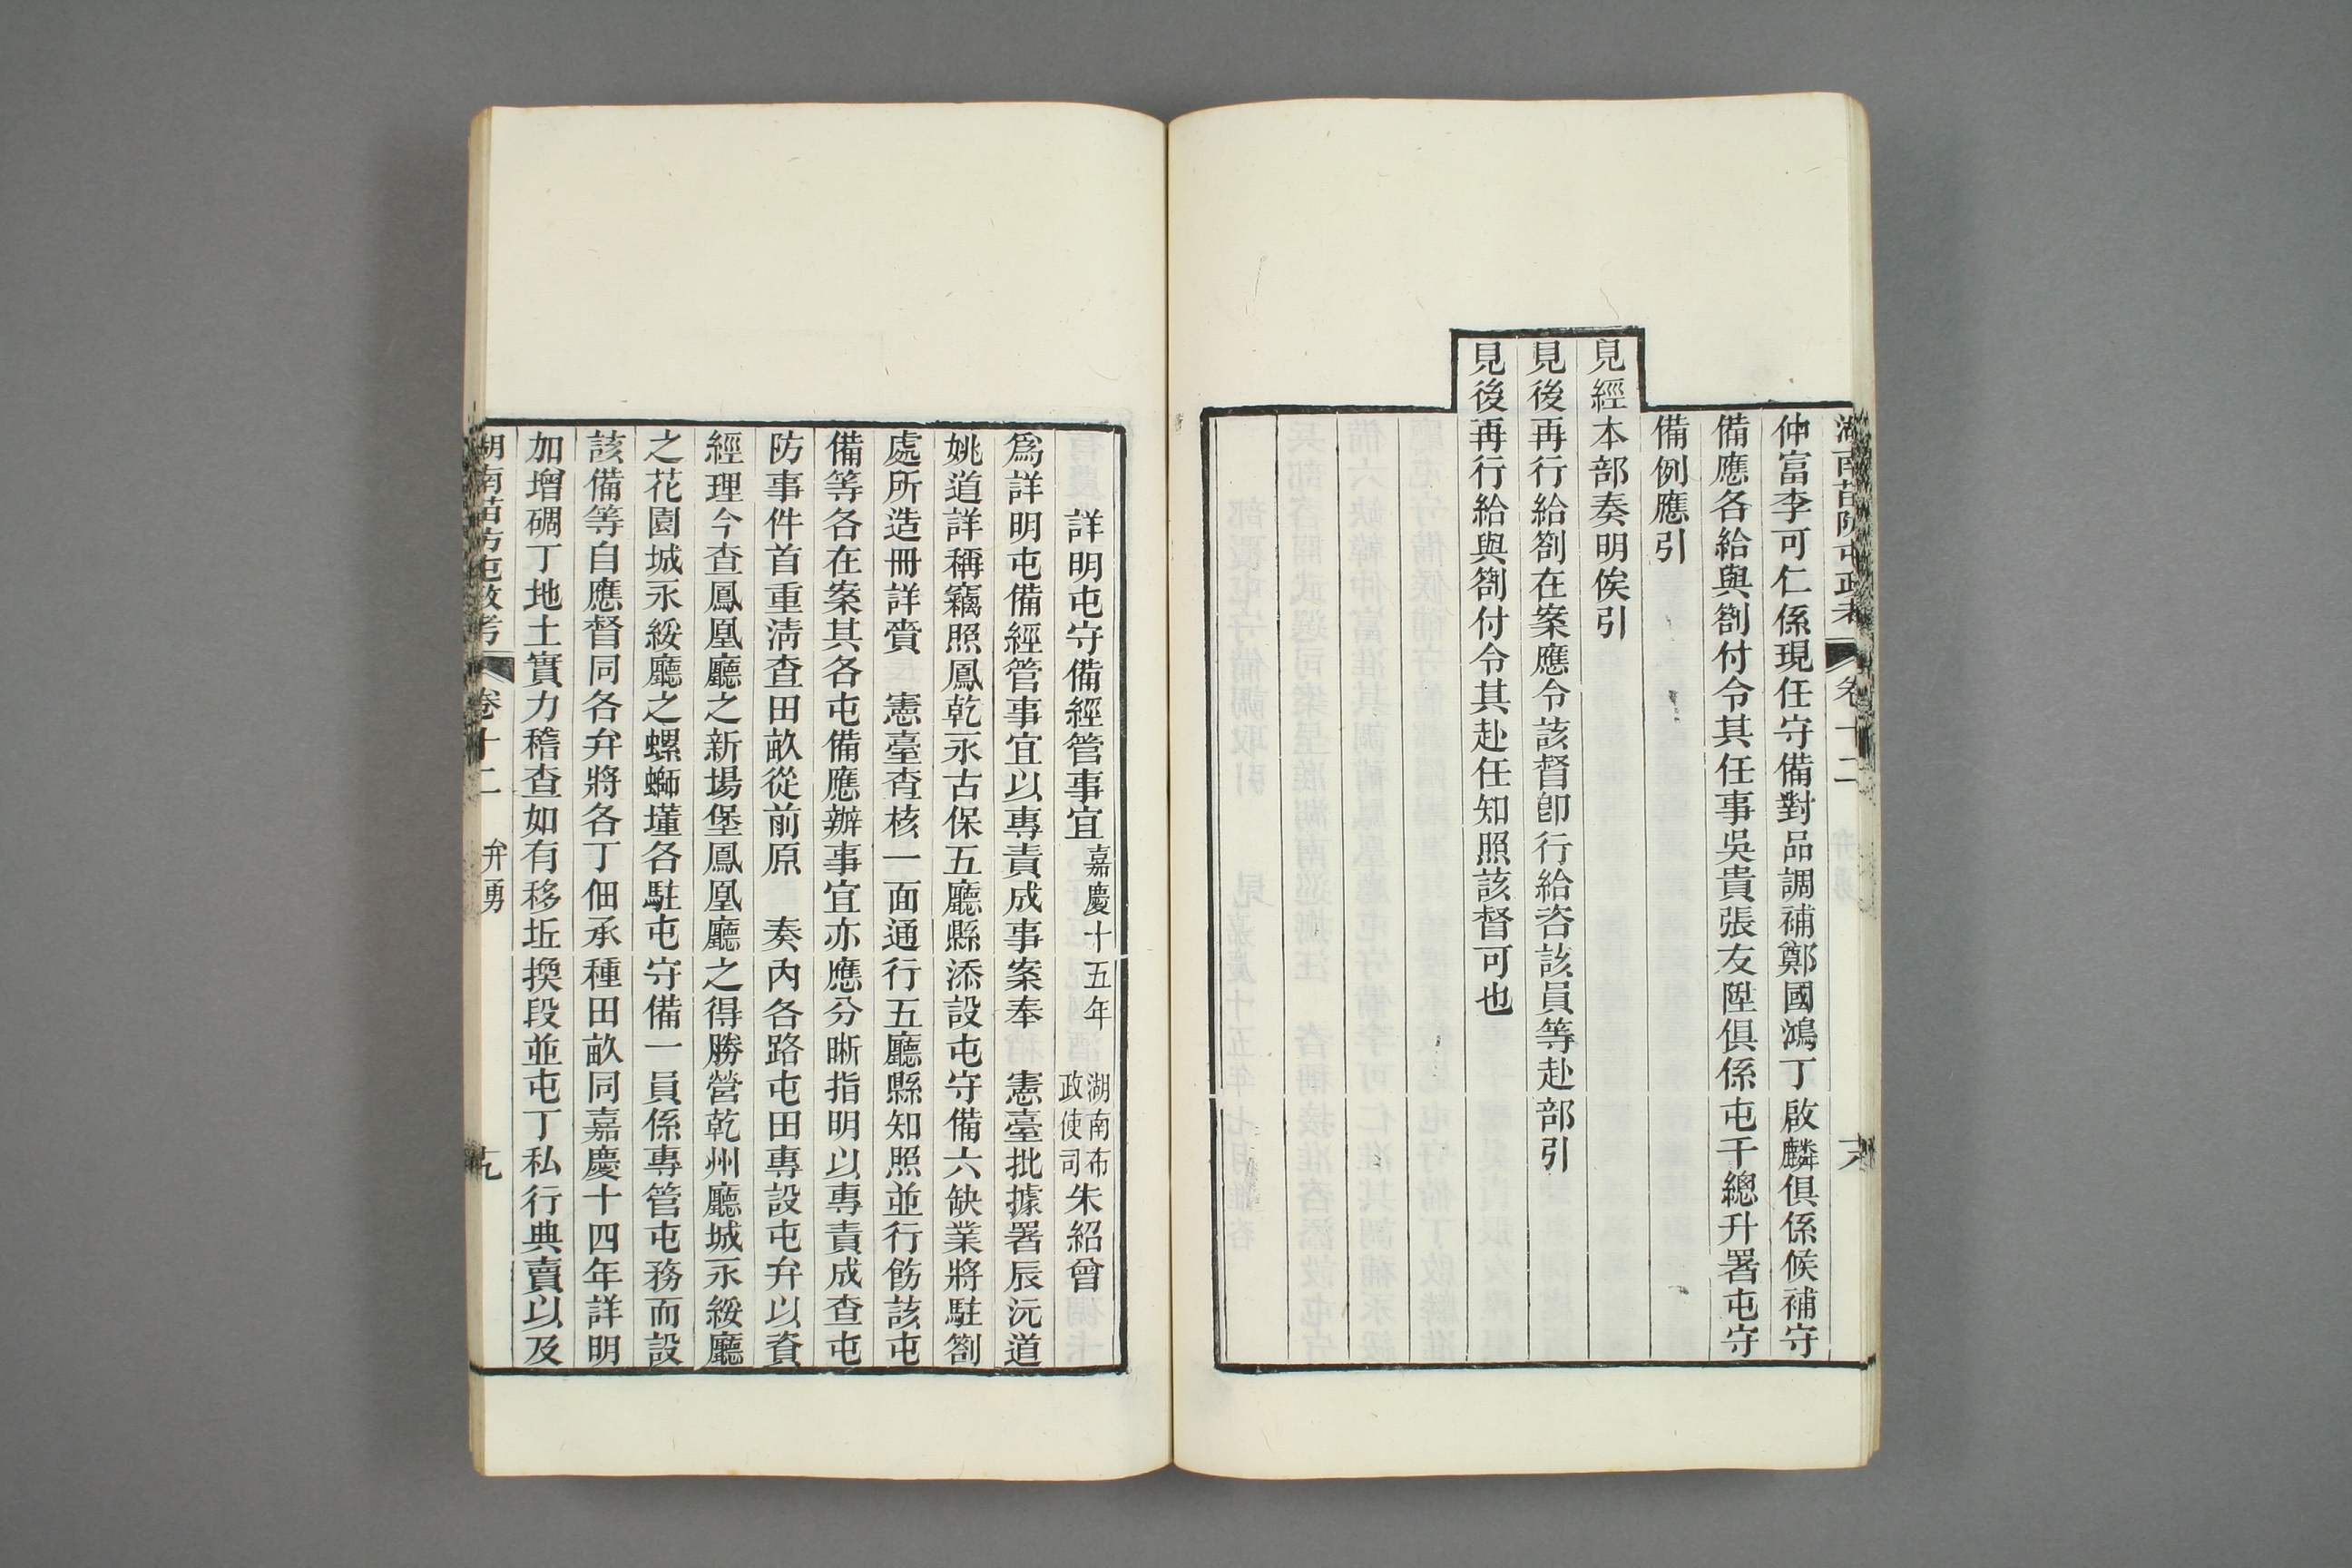 湖南苗防屯政考 卷十二 六
仲富李可仁係現任守備對品調補鄭國鴻丁啟麟俱係候補守
備應各給與劄付令其任事吳貴張友陞俱係屯千總升署屯守
備例應引
見經本部奏明俟引
見後再行給劄在案應令該督卽行給咨該員等赴部引
見後再行給與劄付令其赴任知照該督可也
詳明屯守備經管事宜嘉慶十五年 湖南布政使司朱紹曾
爲詳明屯備經管事宜以專責成事案奉 憲臺批據署辰沅道
姚道詳稱竊照鳳乾永古保五廳縣添設屯守備六缺業將駐劄
處所造冊詳賫 憲臺查核一面通行五廳縣知照並行飭該屯
備等各在案其各屯備應辦事宜亦應分晰指明以專責成查屯
防事件首重淸查田畝從前原 奏內各路屯田專設屯弁以資
經理今查鳳凰廳之新場堡鳳凰廳之得勝營乾州廳城永綏廳
之花園城永綏廳之螺螄墐各駐屯守備一員係專管屯務而設
該備等自應督同各弁將各丁佃承種田畝同嘉慶十四年詳明
加增碉丁地土實力稽查如有移坵換段並屯丁私行典賣以及
湖南苗防屯政考 卷十二 弁勇 九